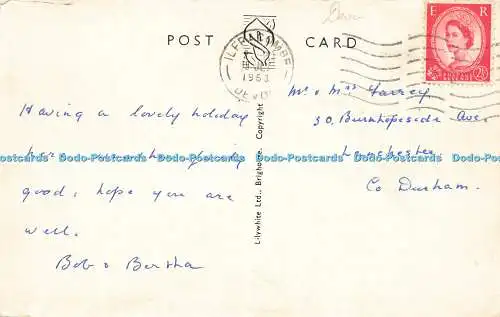 Devon
POST CARD
ILFRACOMBE
1963
DEVON
E R
POSTAGE REVENUE
2½D
Having a lovely holiday
here weather fairly
good, hope you are
well.
Bob & Bertha
Lilywhite Ltd., Brighouse, Copyright
Mr & Mrs Farrey
30, Burnhopeside Ave.
Lanchester
Co Durham.
Dodo-Postcards Dodo-Postcards Dodo-Postcards Dodo-Postcards Dodo-Postcards Dodo-Postcards